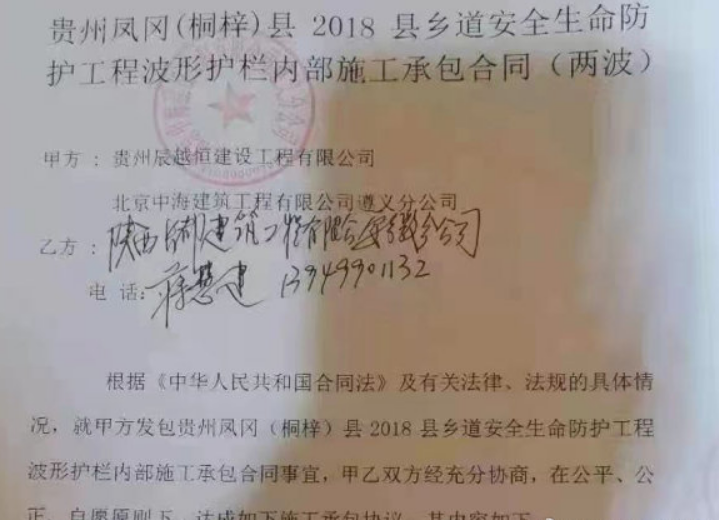 贵州凤冈(桐梓)县 2018 县乡道安全生命防
护工程波形护栏内部施工承包合同（两波）
甲方：贵州辰越恒建设工程有限公司
北京中海建筑工程有限公司遵义分公司
乙方：陕西 建筑工程有限公司安徽分公司
电 话： 建 13949901132
根据《中华人民共和国合同法》及有关法律、法规的具体情
况，就甲方发包贵州凤冈（桐梓）县 2018 县乡道安全生命防护工程
波形护栏内部施工承包合同事宜，甲乙双方经充分协商，在公平、公
正、自愿原则下，达成如下施工承包协议，其内容如下